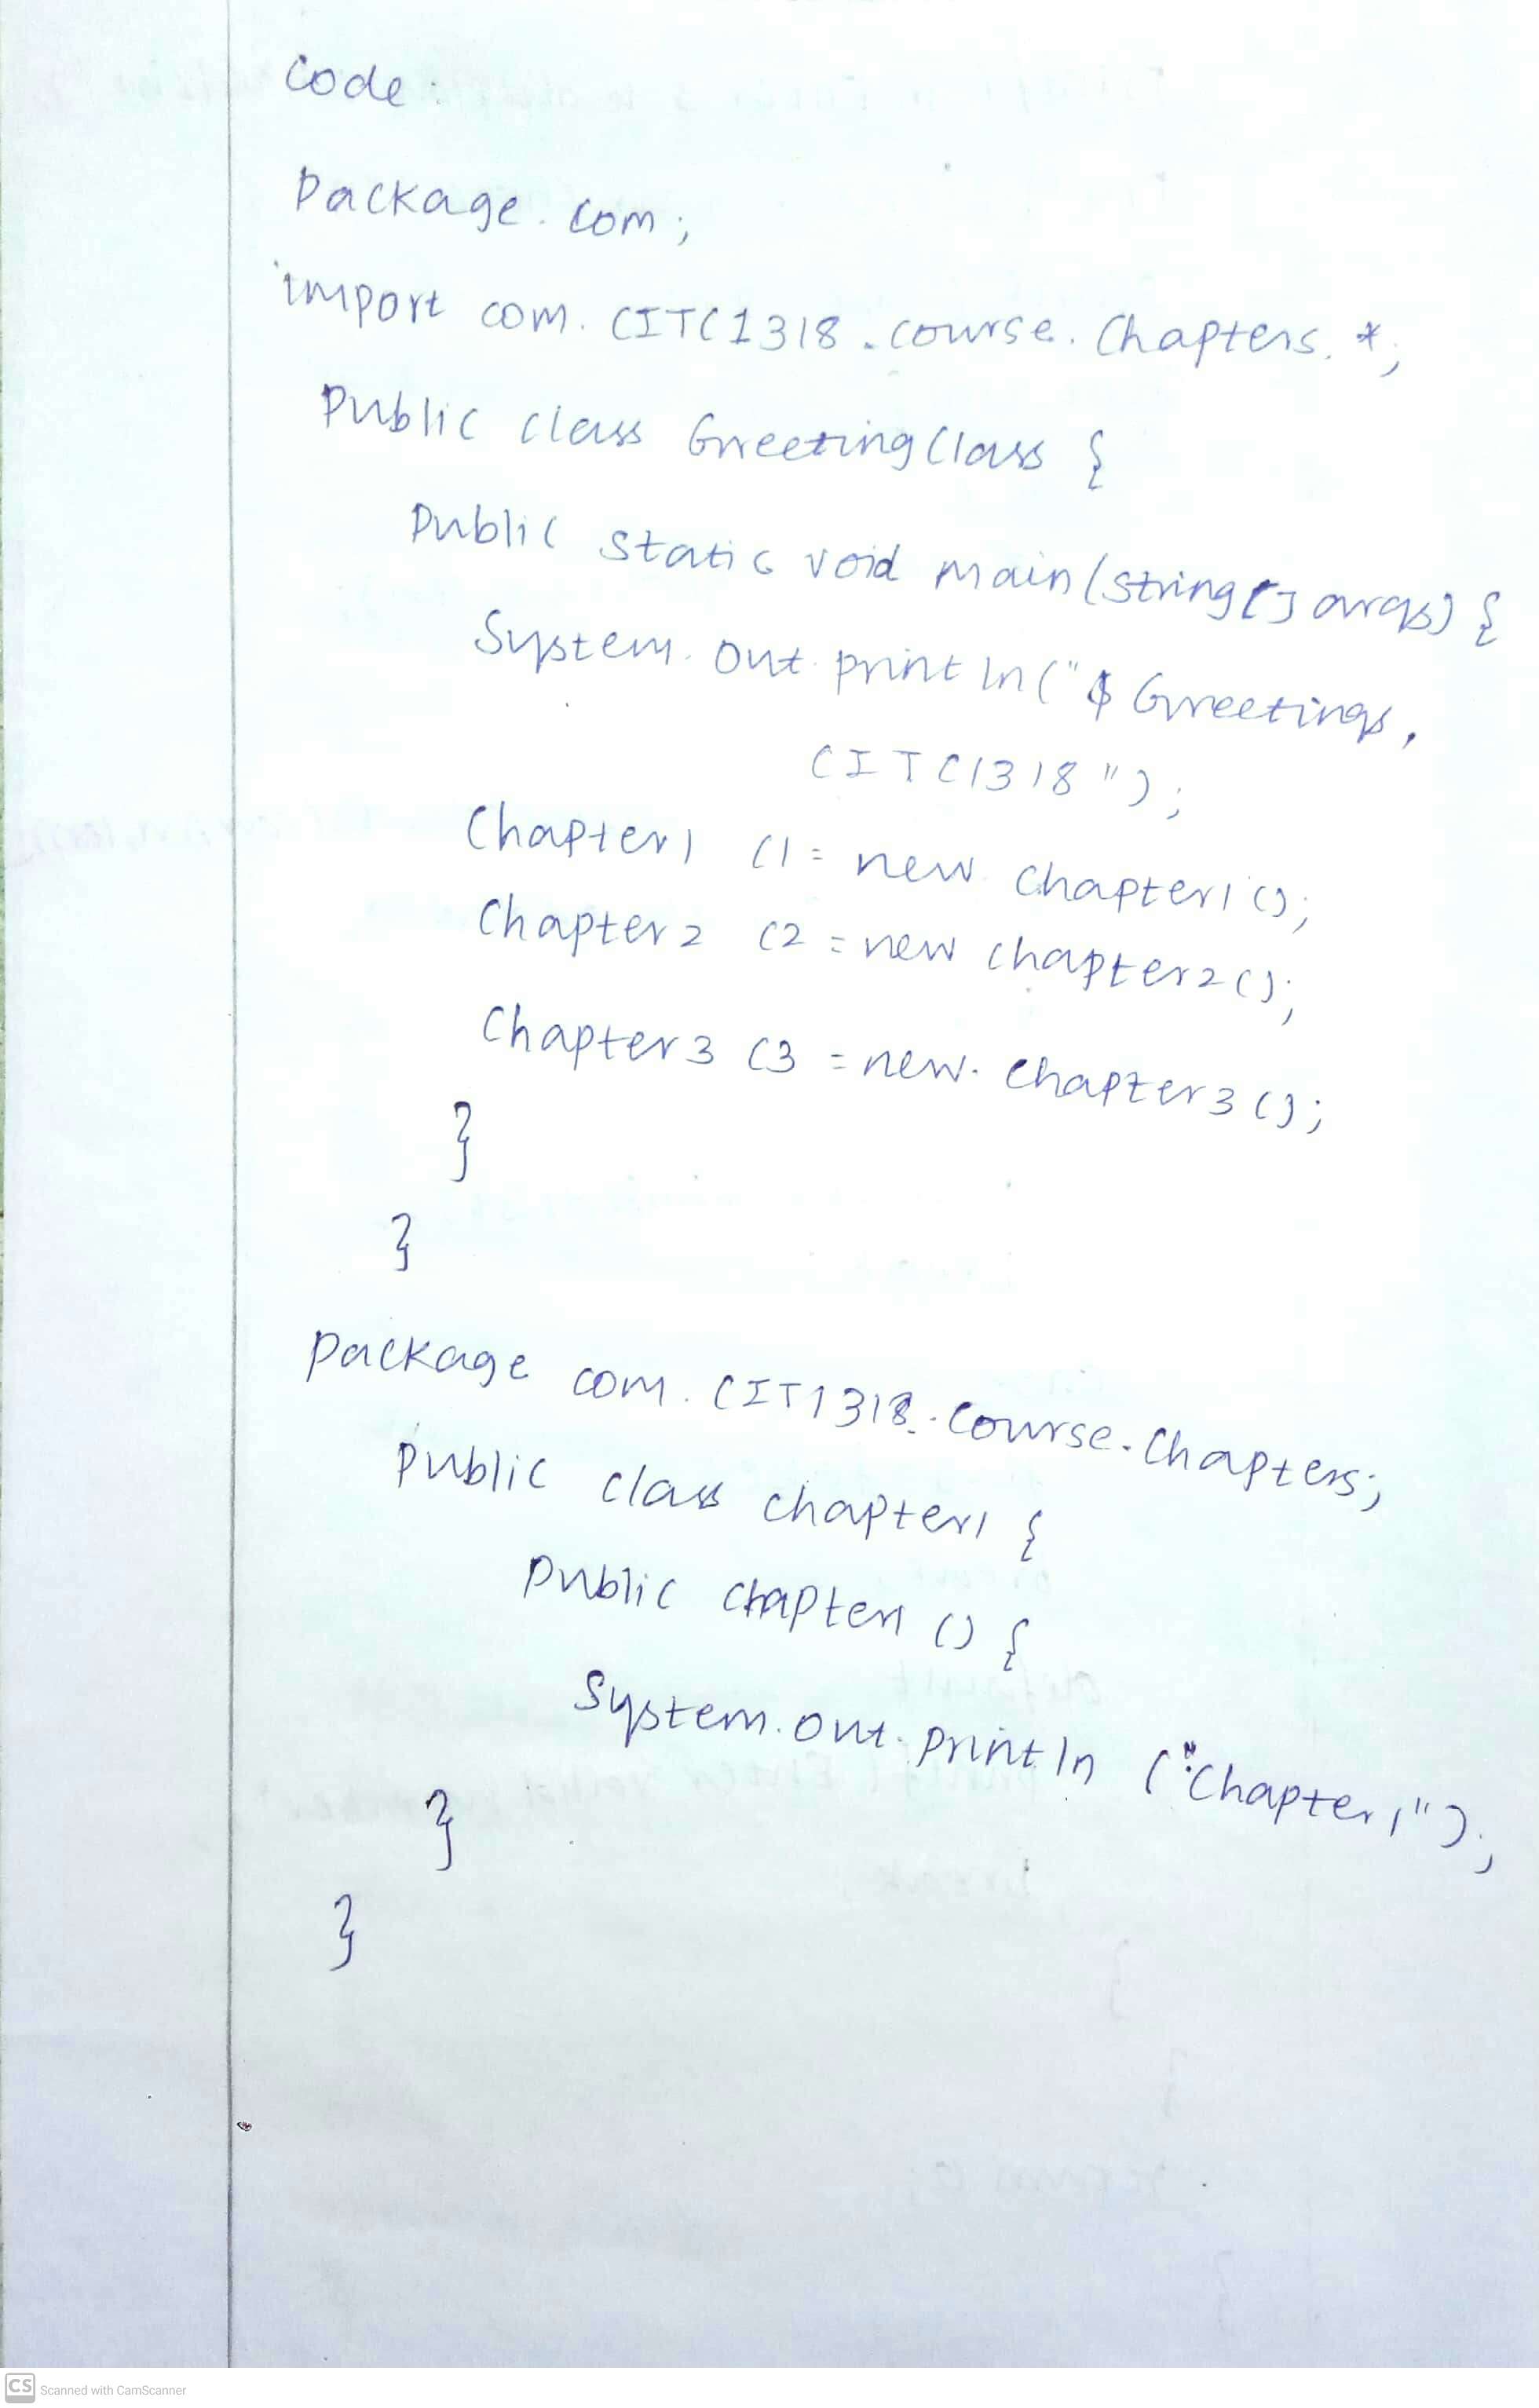 Code:
Package. com;
import com. CITC1318.course. Chapters. *;
Public class GreetingClass {
Public static void main(string[] args) {
System. out. println("$ Greetings,
CITC1318");
Chapter1 C1 = new Chapter1();
Chapter2 C2 = new chapter2();
Chapter3 C3 = new. Chapter3();
}
}
package com. CIT1318. Course. Chapters;
Public class chapter1 {
Public chapter1 () {
System.out.println ("Chapter1");
}
}
CS Scanned with CamScanner